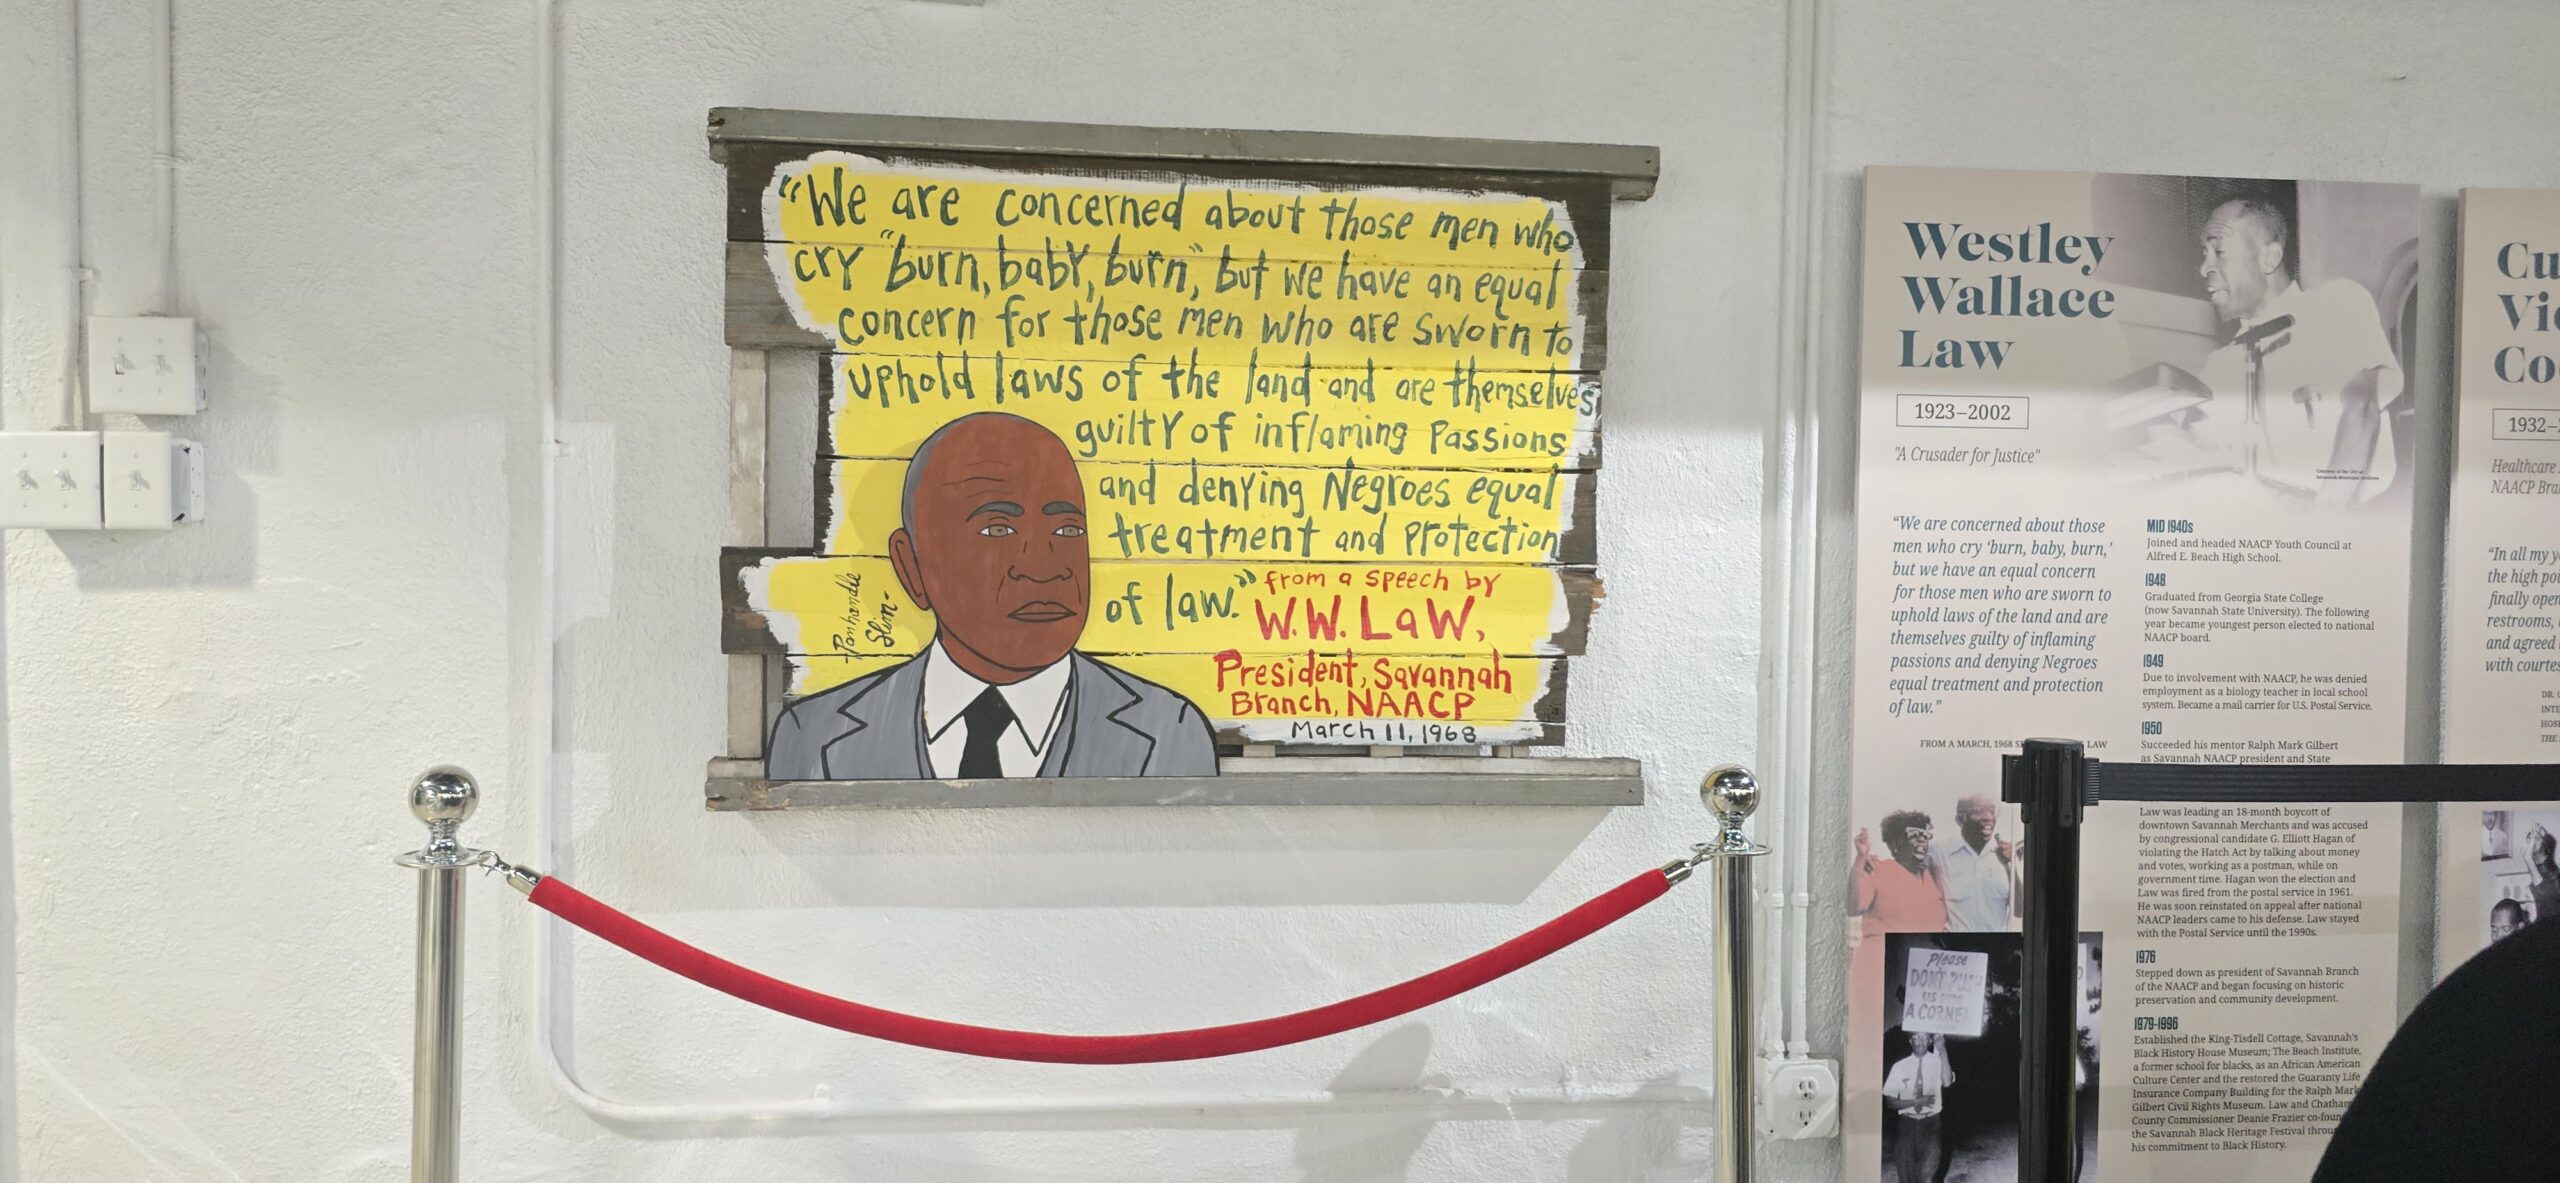 "We are concerned about those men who
cry "burn, baby, burn", but we have an equal
concern for those men who are sworn to
uphold laws of the land and are themselves
guilty of inflaming passions
and denying Negroes equal
treatment and protection
of law."
from a speech by
W.W. LaW,
President, Savannah
Branch, NAACP
March 11, 1968
Panhandle
Slim-
Westley
Wallace
Law
1923–2002
"A Crusader for Justice"
Courtesy of the City of
Savannah Municipal Archives
"We are concerned about those
men who cry 'burn, baby, burn,'
but we have an equal concern
for those men who are sworn to
uphold laws of the land and are
themselves guilty of inflaming
passions and denying Negroes
equal treatment and protection
of law."
FROM A MARCH, 1968 LAW
MID 1940s
Joined and headed NAACP Youth Council at
Alfred E. Beach High School.
1948
Graduated from Georgia State College
(now Savannah State University). The following
year became youngest person elected to national
NAACP board.
1949
Due to involvement with NAACP, he was denied
employment as a biology teacher in local school
system. Became a mail carrier for U.S. Postal Service.
1950
Succeeded his mentor Ralph Mark Gilbert
as Savannah NAACP president and State
Law was leading an 18-month boycott of
downtown Savannah Merchants and was accused
by congressional candidate G. Elliott Hagan of
violating the Hatch Act by talking about money
and votes, working as a postman, while on
government time. Hagan won the election and
Law was fired from the postal service in 1961.
He was soon reinstated on appeal after national
NAACP leaders came to his defense. Law stayed
with the Postal Service until the 1990s.
1976
Stepped down as president of Savannah Branch
of the NAACP and began focusing on historic
preservation and community development.
1979-1996
Established the King-Tisdell Cottage, Savannah's
Black History House Museum; The Beach Institute,
a former school for blacks, as an African American
Culture Center and the restored the Guaranty Life
Insurance Company Building for the Ralph Mark
Gilbert Civil Rights Museum. Law and Chatham
County Commissioner Deanie Frazier
the Savannah Black Heritage Festival
his commitment to Black History.
Please
DON'T PUSH
US INTO
A CORNER
Cu
Vi
Co
1932–
Healthcare
NAACP Bra
"In all my y
the high poi
finally open
restrooms,
and agreed
with courtes
DR.
INTE
HOS
THE